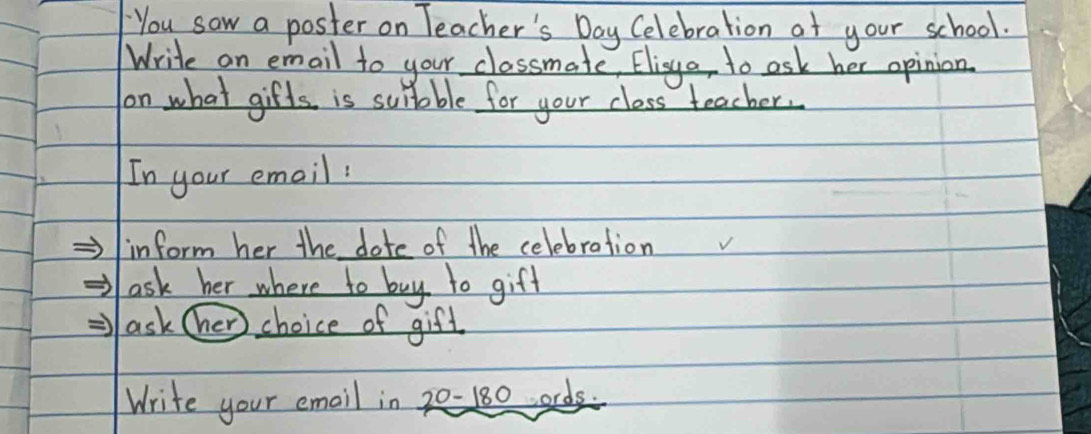 You saw a poster on Teacher's Day Celebration at your school.
Write an email to your classmate, Elisya, to ask her opinion
on what gifts is suitable for your class teacher.
In your email:
⇒ inform her the date of the celebration ✓
⇒ ask her where to buy to gift
⇒ ask her choice of gift.
Write your email in 20-180 words.